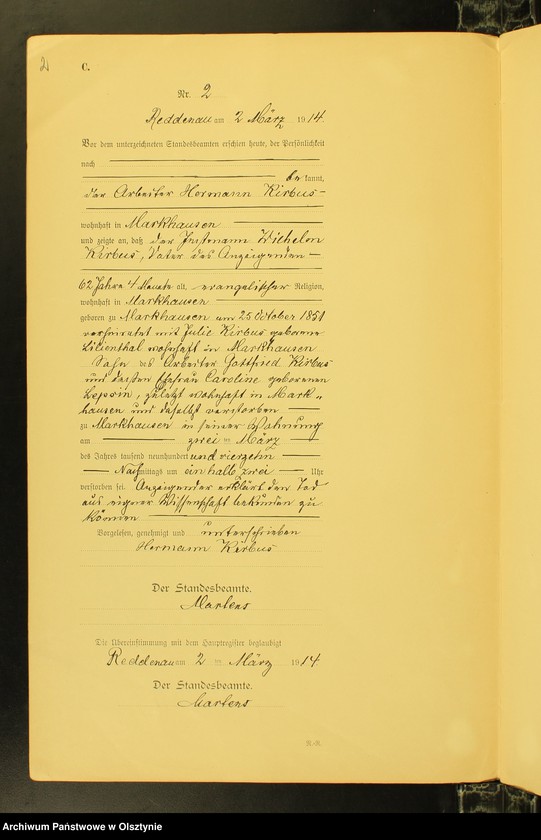 2
C.
Nr. 2
Reddenau am 2 März 1914.
Vor dem unterzeichneten Standesbeamten erschien heute, der Persönlichkeit
nach
bekannt,
der Arbeiter Hermann Kirbus
wohnhaft in Markhausen
und zeigte an, daß der Instmann Wilhelm
Kirbus, Vater des Anzeigenden
62 Jahre 4 Monate alt, evangelischer Religion,
wohnhaft in Markhausen
geboren zu Markhausen am 25 October 1851
verheiratet mit Julie Kirbus geborene
Lilienthal wohnhaft in Markhausen
Sohn des Arbeiter Gottfried Kirbus
und dessen Ehefrau Caroline geborenen
zuletzt wohnhaft in Mark„
hausen und daselbst verstorben
zu Markhausen in seiner Wohnung
am zwei ten März
des Jahres tausend neunhundert und vierzehn
Nachmittags um ein halb zwei Uhr
verstorben sei. Anzeigender erklärt den Tod
aus eigener Wissenschaft bekunden zu
können
Vorgelesen, genehmigt und unterschrieben
Hermann Kirbus
Der Standesbeamte.
Martens
Die Übereinstimmung mit dem Hauptregister beglaubigt
Reddenau am 2 ten März 1914
Der Standesbeamte.
Martens
Archiwum Państwowe w Olsztynie